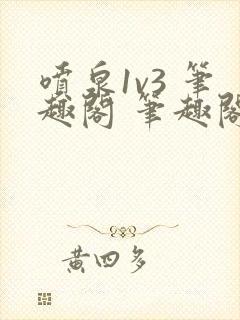 噴泉1v3 筆
趣閣 筆趣閣
黃四多